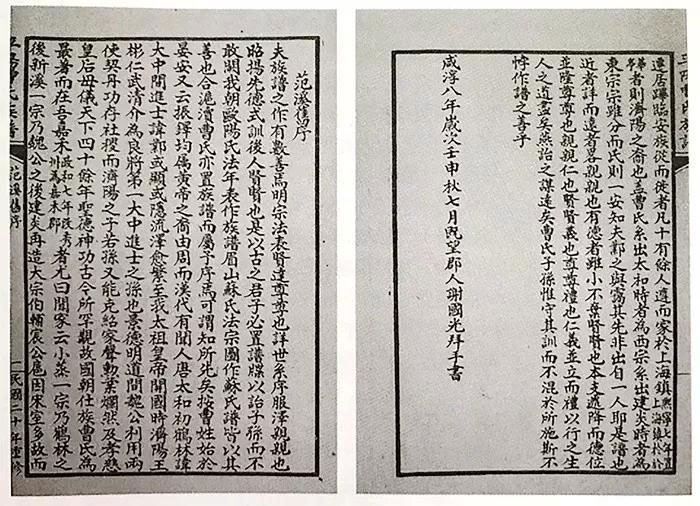 范溪舊序
夫族譜之作有數善焉明宗法表賢達尊尊也詳世系序服澤親親也
昭揚先德式訓後人賢賢也是以古之君子必置譜牒以詒子孫而不
敢朙我朝歐陽氏法年表作族譜眉山蘇氏法宗圖作蘇氏譜皆以其
善也合滬瀆曹氏亦置族譜而屬予序焉可謂知所先矣按曹姓始於
晏安又云振鐸均屬黃帝之裔由周而漢代有聞人唐太和初鶴林諱
大中間進士諱鄴或顯或隱流澤愈繁至我太祖皇帝開國時濟陽王
彬仁武清介為良將第一大中進士之孫也景德明道間魏公利用兩
使契丹功存社稷而濟陽之子若孫又能克紹家聲勳業爛然及孝慈
皇后母儀天下四十餘年聖德神功古今所罕觀故國朝仕族曹氏為
最著而在吾嘉禾政和七年改秀州為嘉禾郡者尤曰聞家云小蒸一宗乃鶴林之
後新溪一宗乃魏公之後建炎再造大宗伯輔宸公扈因宋室多故而
范溪舊序
一
民國二十年重修
遷居蹕臨安族從而徙者凡十有餘人遵而家於上海鎮熙寧七年置上海鎮於
華亭者則濟陽之裔也蓋曹氏系出太和時者為西宗系出建炎時者為
東宗宗雖分而氏則一安知夫鄴之與霱其先非出自一人耶是譜也
近者詳而遠者畧親親也有德者雖小不葉賢賢也本支遞降而德位
並隆尊尊也親親仁也賢賢義也尊尊禮也仁義並立而禮以行之生
人之道盡矣燕詒之謀遠矣曹氏子孫惟守其訓而不混於所施斯不
悖作譜之善予
咸淳八年歲次壬申秋七月既望郡人謝國光拜手書